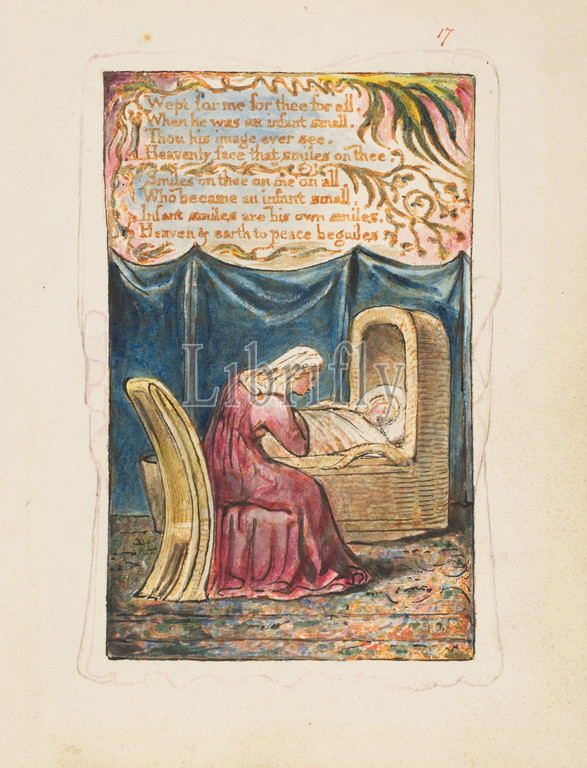 17
Wept for me for thee for all.
When he was an infant small.
Thou his image ever see.
Heavenly face that smiles on thee.
Smiles on thee on me on all
Who became an infant small
Infant smiles are his own smiles.
Heaven & earth to peace beguiles
Librifly